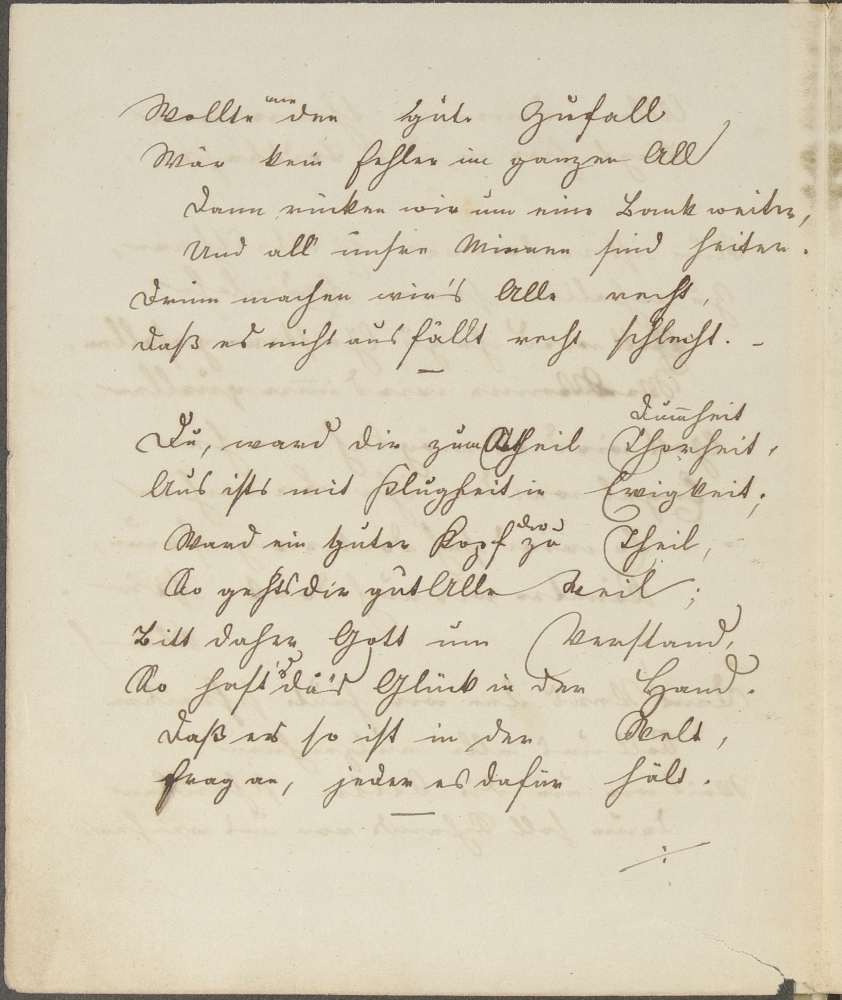 Wollte nur der gute Zufall
Wär kein Fehler im ganzen All
Dann rücken wir um eine Bank weiter,
Und all' unsre Mienen sind heiter.
Drum machen wir's Alle recht,
Daß es nicht ausfällt recht schlecht. –
Dummheit
Du, ward dir zum Theil Thorheit,
Aus ists mit Klugheit in Ewigkeit;
Ward ein guter Kopf dir zu Theil,
So gehts dir gut Alle weil;
Bitt daher Gott um Verstand,
So hast du's Glück in der Hand.
Daß es so ist in der Welt,
Frag an, jeder es dafür hält.